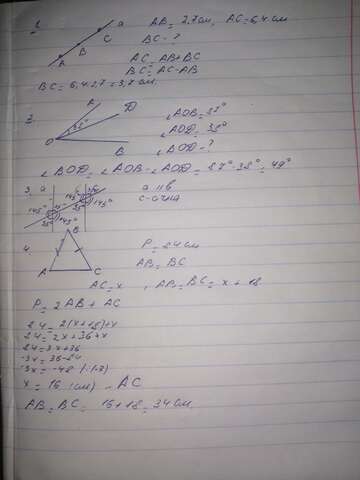 1.
a
A
B
C
AB = 2,7 см, AC = 6,4 см
BC - ?
AC = AB + BC
BC = AC - AB
BC = 6,4 - 2,7 = 3,7 см.
2.
A
D
O
B
38°
∠AOB = 87°
∠AOD = 38°
∠BOD - ?
∠BOD = ∠AOB - ∠AOD = 87° - 38° = 49°
3.
a
145°
145°
35°
145°
145°
35°
a || в
c - 
4.
B
A
C
P = 84 см
AB = BC
AC = x , AB = BC = x + 18
P = 2AB + AC
84 = 2(x+18)+x
84 = 2x + 36 + x
84 = 3x + 36
-3x = 36 - 84
-3x = -48 (:(-3)
x = 16 (см) - AC
AB = BC = 16 + 18 = 34 см.